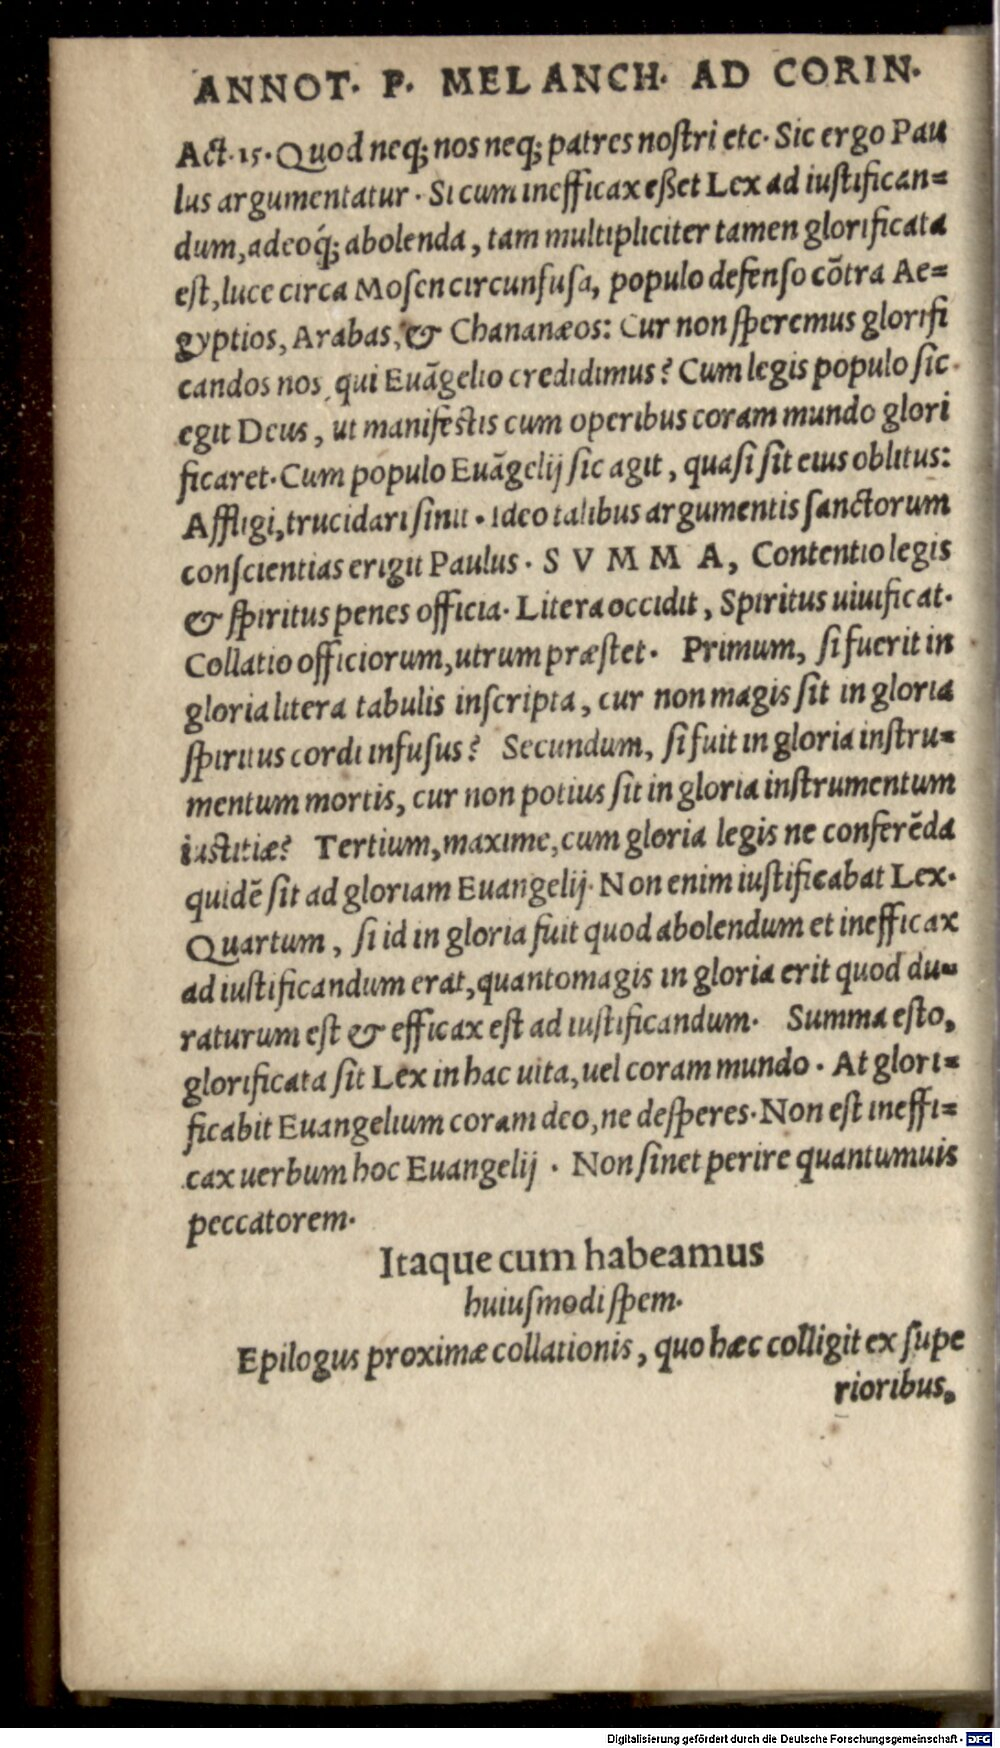 ANNOT. P. MELANCH. AD CORIN.
Act. 15. Quod neq; nos neq; patres nostri etc. Sic ergo Pau
lus argumentatur. Si cum inefficax eßet Lex ad iustifican=
dum, adeoq́; abolenda, tam multipliciter tamen glorificata
est, luce circa Mosen circunfusa, populo defenso cõtra Ae=
gyptios, Arabas, & Chananæos: Cur non speremus glorifi
candos nos, qui Euãgelio credidimus? Cum legis populo sic
egit Deus, ut manifestis cum operibus coram mundo glori
ficaret. Cum populo Euãgelij sic agit, quasi sit eius oblitus:
Affligi, trucidari sinit. Ideo talibus argumentis sanctorum
conscientias erigit Paulus. S V M M A, Contentio legis
& spiritus penes officia. Litera occidit, Spiritus uiuificat.
Collatio officiorum, utrum præstet. Primum, si fuerit in
gloria litera tabulis inscripta, cur non magis sit in gloria
spiritus cordi infusus? Secundum, si fuit in gloria instru=
mentum mortis, cur non potius sit in gloria instrumentum
iustitiæ? Tertium, maxime, cum gloria legis ne conferẽda
quidẽ sit ad gloriam Euangelij. Non enim iustificabat Lex.
Quartum, si id in gloria fuit quod abolendum et inefficax
ad iustificandum erat, quantomagis in gloria erit quod du=
raturum est & efficax est ad iustificandum. Summa esto,
glorificata sit Lex in hac uita, uel coram mundo. At glori=
ficabit Euangelium coram deo, ne desperes. Non est ineffi=
cax uerbum hoc Euangelij. Non sinet perire quantumuis
peccatorem.
Itaque cum habeamus
huiusmodi spem.
Epilogus proximæ collationis, quo hæc colligit ex supe
rioribus,
Digitalisierung gefördert durch die Deutsche Forschungsgemeinschaft - DFG